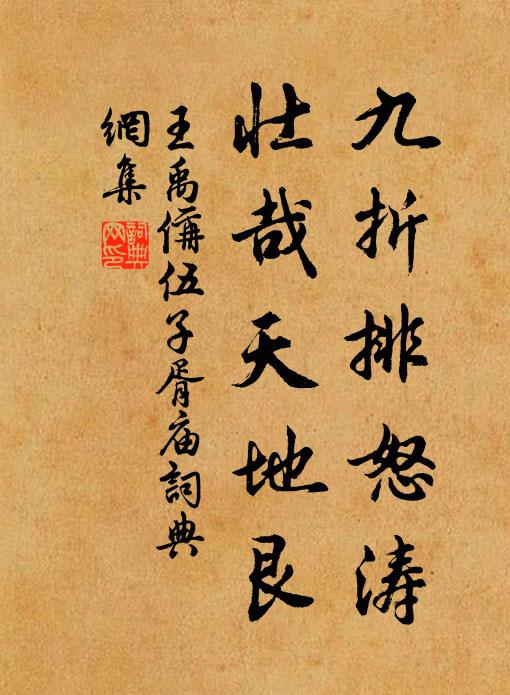 九折排怒涛
壮哉天地艮
王禹偁伍子胥庙詞典
網集
詞典
网印